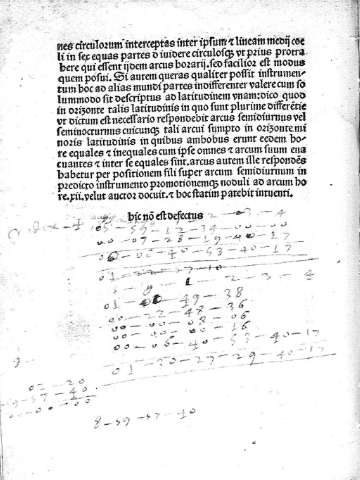 nes circulorum interceptas inter ipsum ⁊ lineam medij coe
li in sex equas partes diuidere circulosq̄ vt prius protra
here qui essent ijdem arcus horarij, sed facilior est modus
quem posui. Si autem queras qualiter possit instrumen-
tum hoc ad alias mundi partes indifferenter valere cum so
lummodo sit descriptus ad latitudinem vnam: dico quod
in orizonte talis latitudinis in quo sunt plurime differētie
vt dictum est necessario respondebit arcus semidiurnus vel
seminocturnus cuicunq̄ tali arcui sumpto in orizonte mi
noris latitudinis in quibus ambobus erunt eedem ho-
re equales ⁊ inequales cum ipse omnes ⁊ arcum suum eua
cuantes ⁊ inter se equales sint. arcus autem ille respondēs
habetur per positionem fili super arcum semidiurnum in
predicto instrumento promotionemq̄ noduli ad arcum ho
re.xii. velut auctor docuit. ⁊ hoc statim patebit intuenti.
hic nō est defectus
05-59-12-34-00-00
1 - 2 - 3 - 4
01 - 49-38
00-22-48-36
00-00-08-06
00-00-00-16
00-06-40-53-40-17
01-30-27-29-40-17
02-20